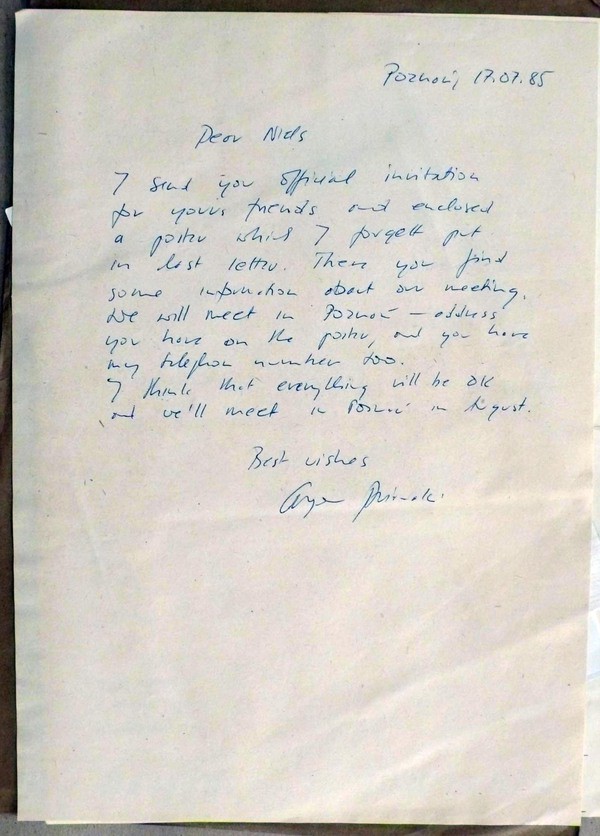 Poznań, 17.07.85
Dear Niels
I send you official invitation
for yours friends and enclosed
a poster which I forgett put
in last letter. There you find
some information about our meeting.
We will meet in Poznań - address
you have on the poster, and you have
my telephon number too.
I think that everything will be OK
and we'll meet in Poznań in August.
Best wishes